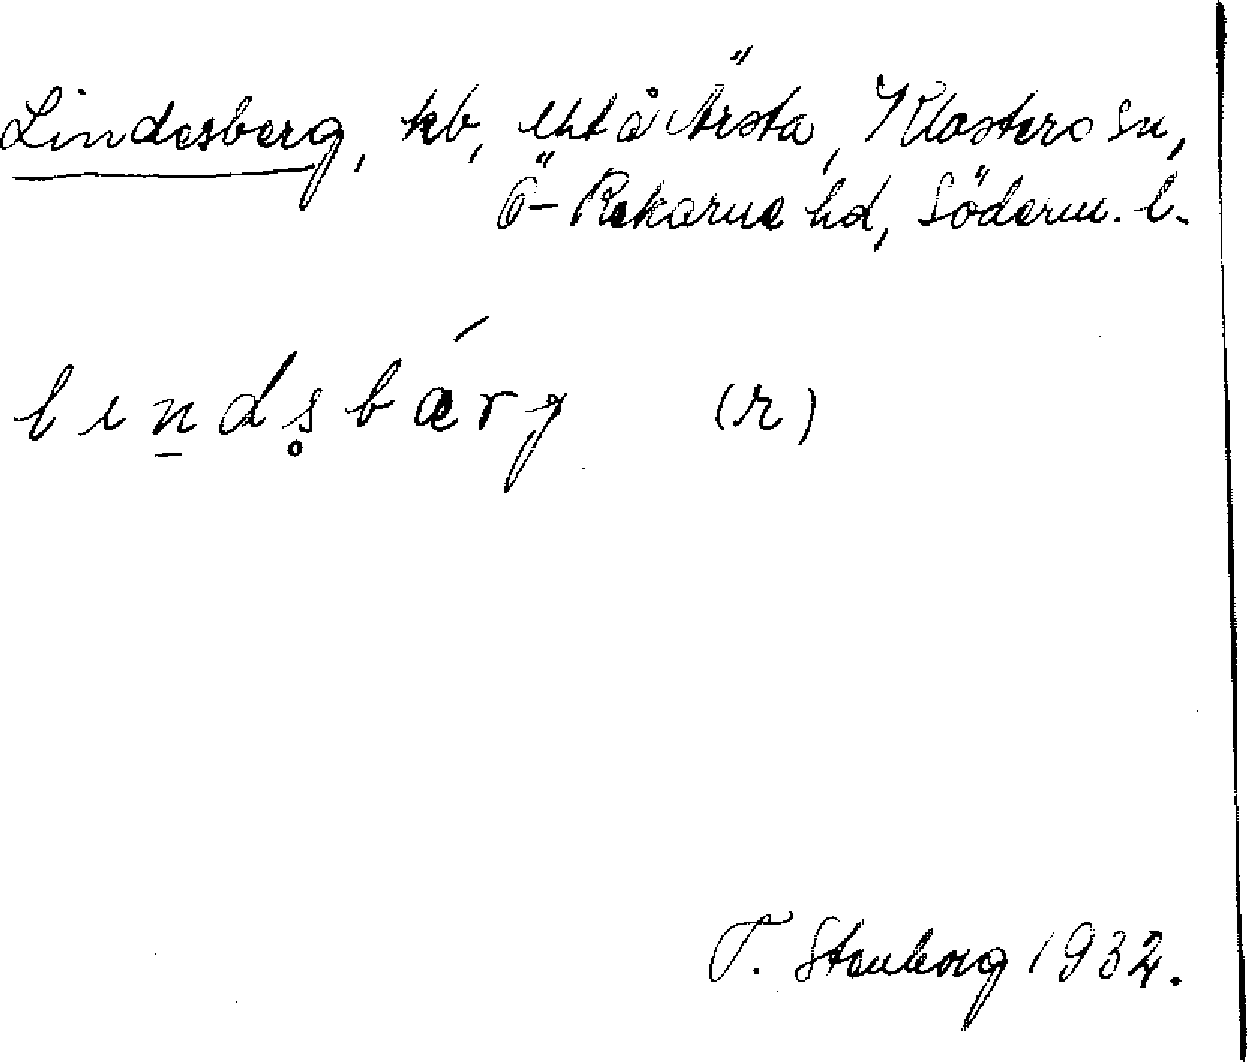 Lindesberg, hb, uht å Ärsta, Klosters sn,
Ö-Rekarne hd, Söderm. l.
lın̠ds̥bǽrg (r)
T. Stenborg 1932.